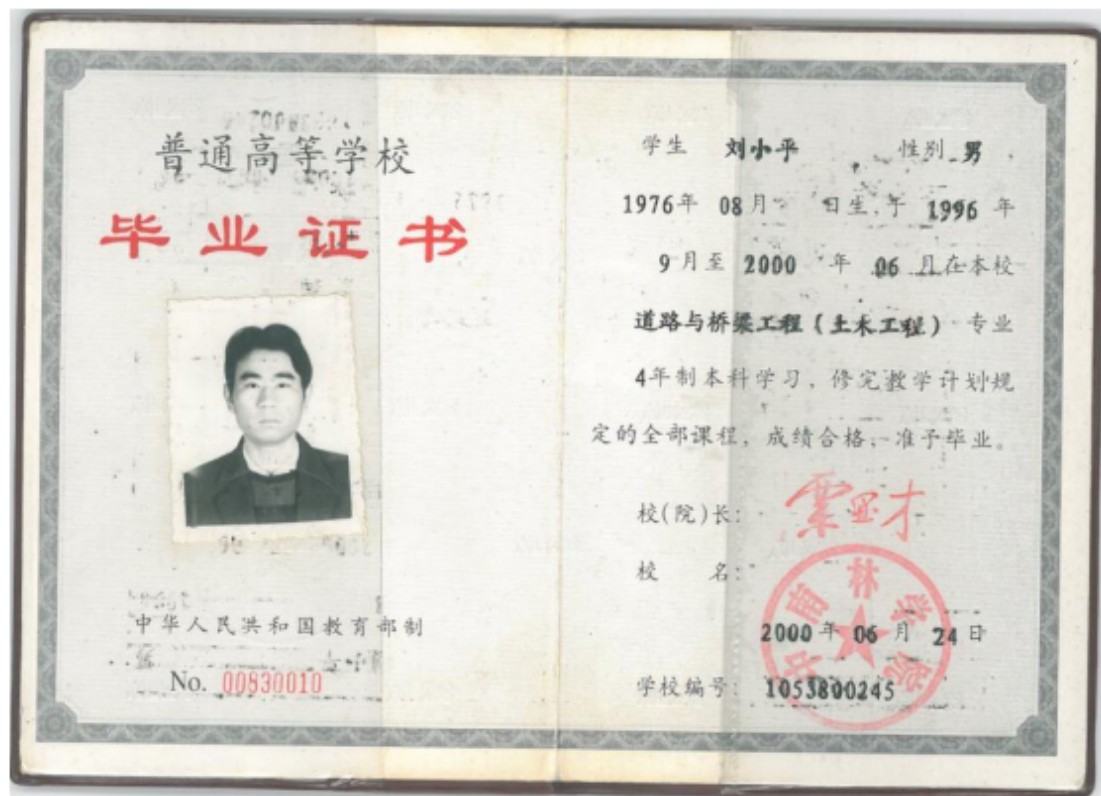 普通高等学校
毕业证书
中华人民共和国教育部制
No. 00830010
学生 刘小平 性别 男 ,
1976年 08月 日生,于 1996 年
9月至 2000 年 06 月在本校
道路与桥梁工程(土木工程) 专业
4年制本科学习，修完教学计划规
定的全部课程，成绩合格，准予毕业。
校(院)长:
校 名:
中南林学院
2000年 06 月 24 日
学校编号: 1053800245